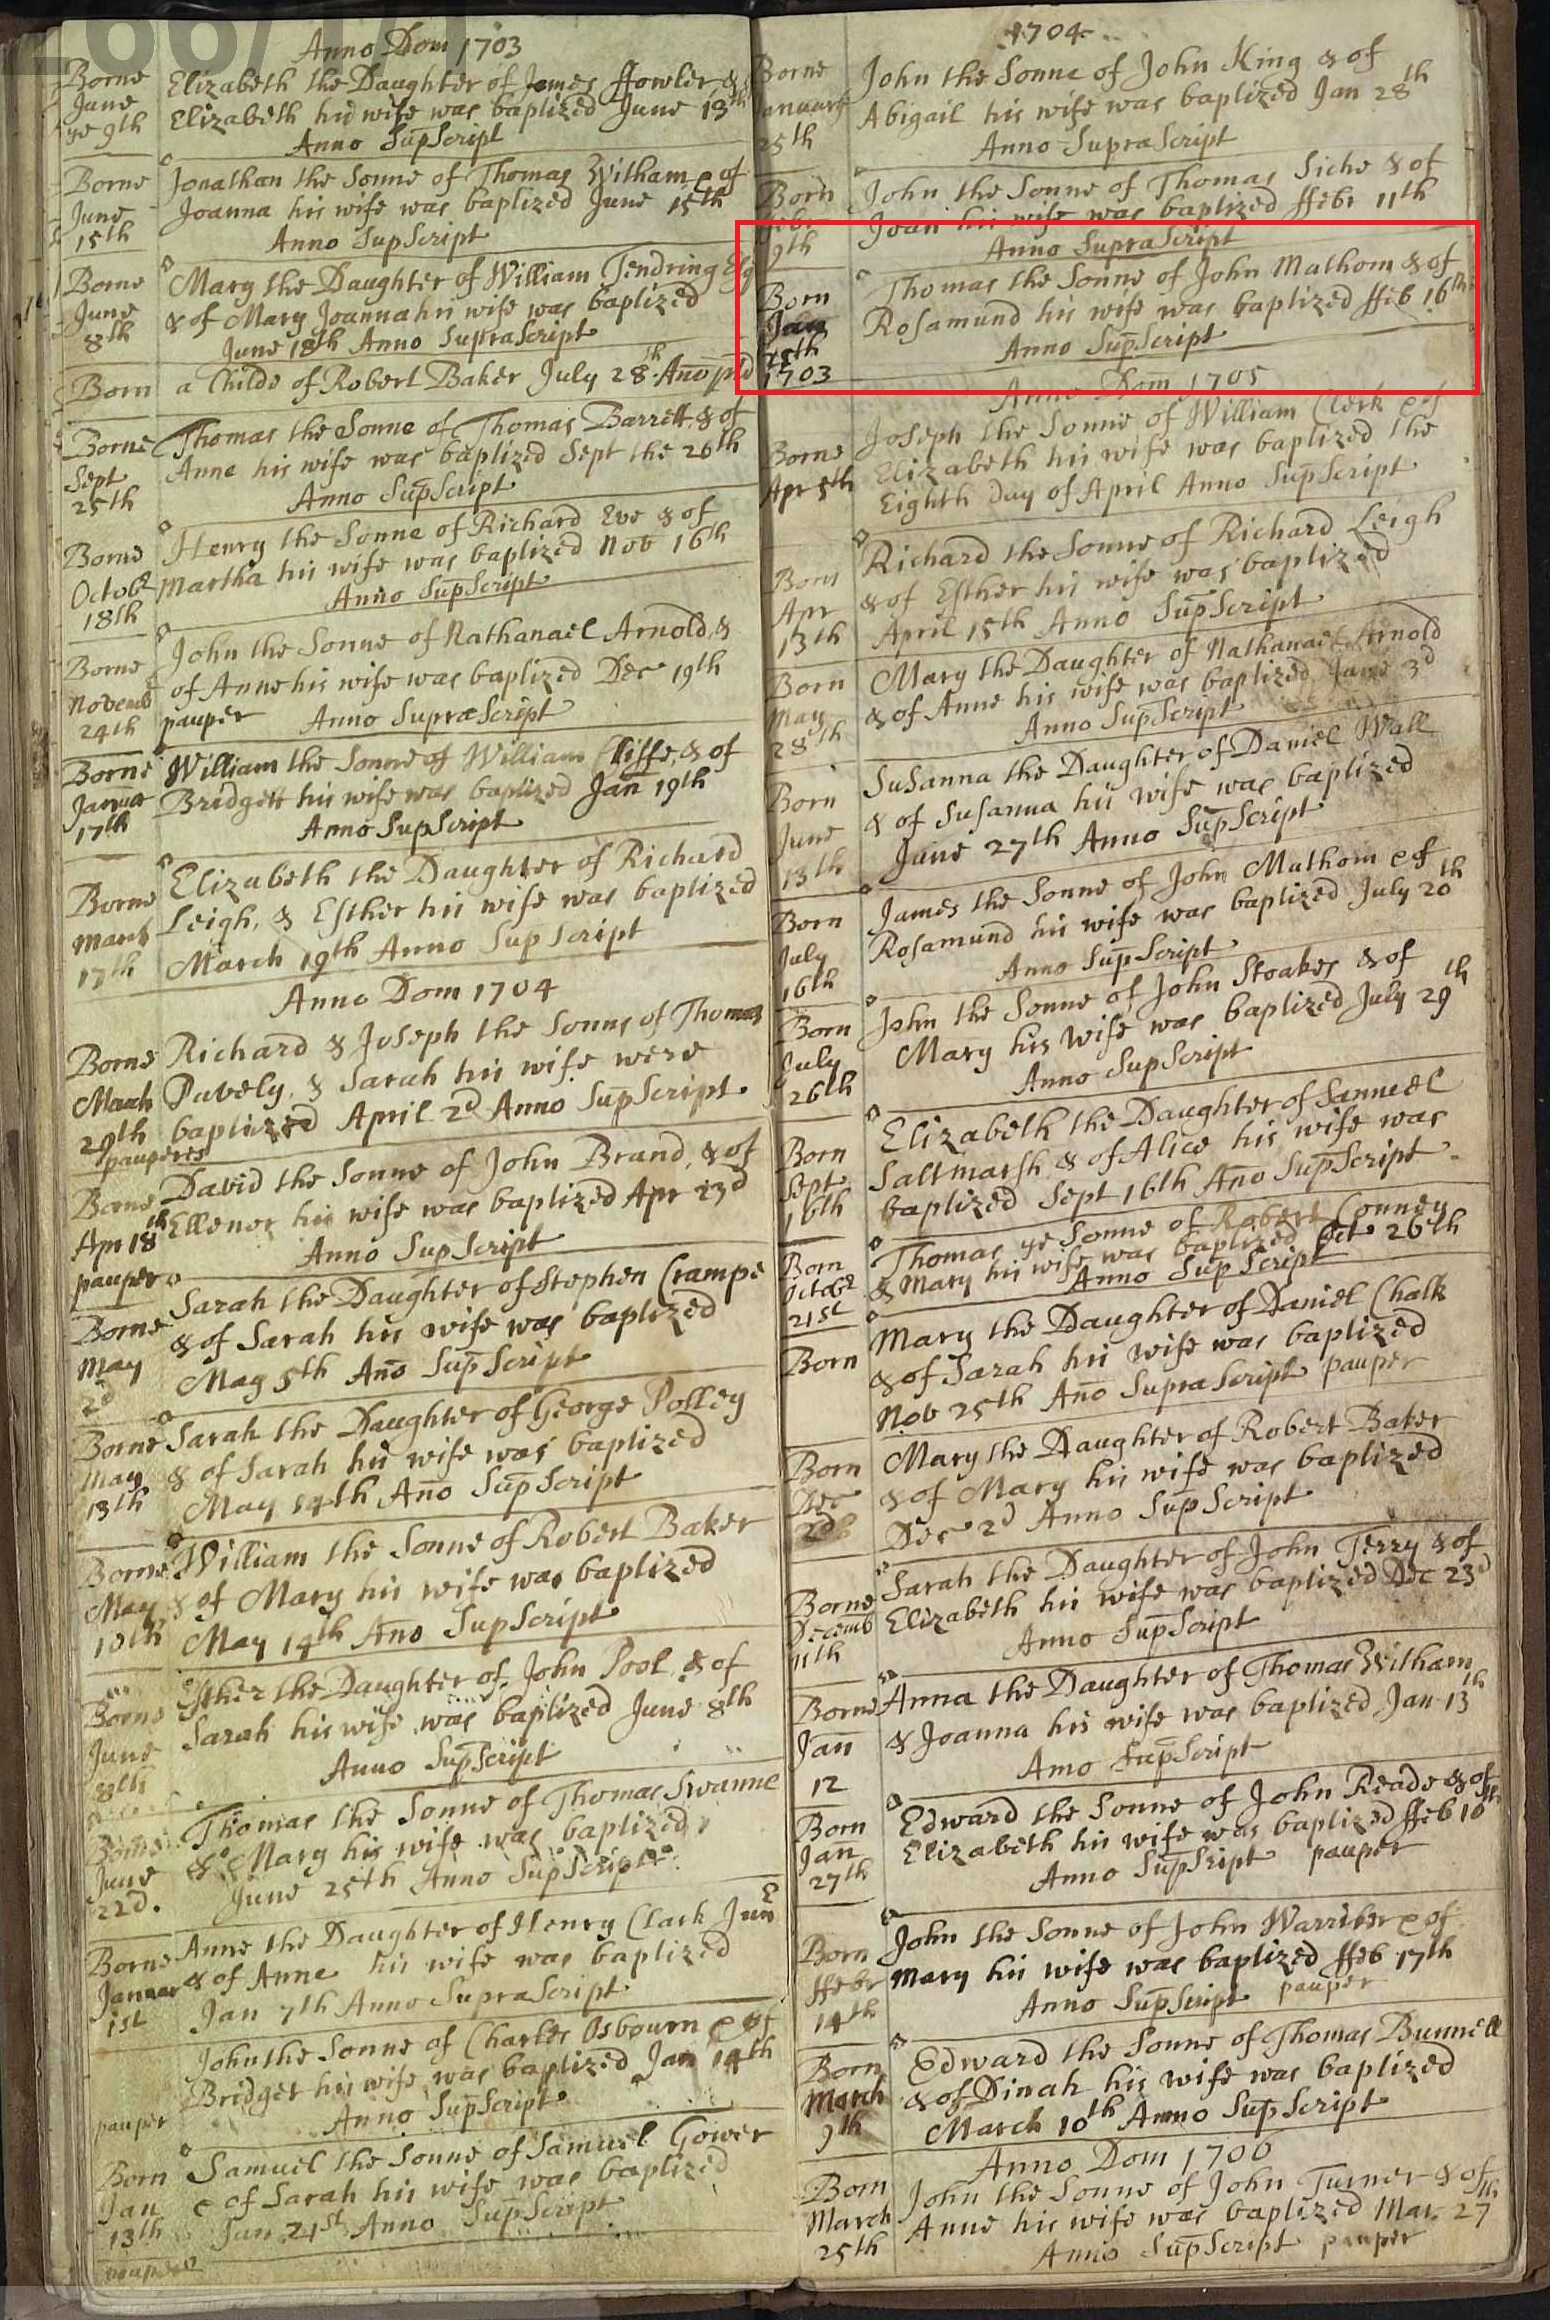 Anno Dom 1703
Borne June ye 9th
Elizabeth the Daughter of James Fowler &
Elizabeth his wife was baptized June 13th
Anno SupScript
Borne June 15th
Jonathan the Sonne of Thomas Witham & of
Joanna his wife was baptized June 15th
Anno SupScript
Borne June 8th
Mary the Daughter of William Tendring Esq
& of Mary Joanna his wife was baptized
June 18th Anno SupraScript
Born
a Childe of Robert Baker July 28th Ano prd
Borne Sept 25th
Thomas the Sonne of Thomas Barrett & of
Anne his wife was baptized Sept the 26th
Anno SupScript
Borne Octobr 18th
Henry the Sonne of Richard Eve & of
Martha his wife was baptized Nov 16th
Anno SupScript
Borne Novemb 24th
John the Sonne of Nathanael Arnold &
of Anne his wife was baptized Dec 19th
pauper Anno SupraScript
Borne Januar 17th
William the Sonne of William Cliffe & of
Bridgett his wife was baptized Jan 19th
Anno SupScript
Borne March 17th
Elizabeth the Daughter of Richard
Leigh, & Esther his wife was baptized
March 19th Anno SupScript
Anno Dom 1704
Borne March 29th pauperes
Richard & Joseph the Sonns of Thomas
Pavely & Sarah his wife were
baptized April 2d Anno SupScript
Borne Apr 18th pauper
David the Sonne of John Brand, & of
Ellenor his wife was baptized Apr 23d
Anno SupScript
Borne May 2d
Sarah the Daughter of Stephen Crampe
& of Sarah his wife was baptized
May 5th Ano SupScript
Borne May 13th
Sarah the Daughter of George Polley
& of Sarah his wife was baptized
May 14th Ano SupScript
Borne May 10th
William the Sonne of Robert Baker
& of Mary his wife was baptized
May 14th Ano SupScript
Borne June 8th
Esther the Daughter of John Pool & of
Sarah his wife was baptized June 8th
Anno SupScript
Borne June 22d.
Thomas the Sonne of Thomas Swanne
& Mary his wife was baptized
June 25th Anno SupScript
Borne Januar 1st
Anne the Daughter of Henry Clark Junr
& of Anne his wife was baptized
Jan 7th Anno SupraScript
John the Sonne of Charles Osbourn & of
Bridget his wife was baptized Jan 14th
pauper Anno SupScript
Born Jan 13th
Samuel the Sonne of Samuel Gower
e of Sarah his wife was baptized
Jan 21st Anno SupScript
1704
Borne January 25th
John the Sonne of John King & of
Abigail his wife was baptized Jan 28th
Anno SupraScript
Born Febr 9th
John the Sonne of Thomas Siche & of
Joan his wife was baptized ffebr 11th
Anno SupraScript
Born Jan 1703
Thomas the Sonne of John Mathom & of
Rosamund his wife was baptized ffeb 16th
Anno SupScript
Anno Dom 1705
Borne Apr 5th
Joseph the Sonne of William Clerk e of
Elizabeth his wife was baptized the
Eighth Day of April Anno SupScript
Born Apr 13th
Richard the Sonne of Richard Leigh
& of Esther his wife was baptized
April 15th Anno SupScript
Born May 28th
Mary the Daughter of Nathanael Arnold
& of Anne his wife was baptized June 3d
Anno SupScript
Born June 13th
Susanna the Daughter of Daniel Wall
& of Susanna his wife was baptized
June 27th Anno SupScript
Born July 16th
James the Sonne of John Mathom e of
Rosamund his wife was baptized July 20th
Anno SupScript
Born July 26th
John the Sonne of John Stoakes & of
Mary his Wife was baptized July 29th
Anno SupScript
Born Sept 16th
Elizabeth the Daughter of Samuel
Saltmarsh & of Alice his wife was
baptized Sept 16th Ano SupScript
Born Octobr 21st
Thomas ye Sonne of Robert Conney
& Mary his wife was baptized Oct 26th
Anno SupScript
Born
Mary the Daughter of Daniel Chalk
& of Sarah his wife was baptized
Nov 25th Ano SupraScript pauper
Born Dec 2d
Mary the Daughter of Robert Baker
& of Mary his wife was baptized
Dec 2d Anno SupScript
Borne Decemb 11th
Sarah the Daughter of John Terry & of
Elizabeth his wife was baptized Dec 23d
Anno SupScript
Borne Jan 12
Anna the Daughter of Thomas Witham
& Joanna his wife was baptized Jan 13th
Anno SupScript
Born Jan 27th
Edward the Sonne of John Reade & of
Elizabeth his wife was baptized ffeb 10th
Anno SupScript pauper
Born ffebr 14th
John the Sonne of John Warriber e of
Mary his wife was baptized ffeb 17th
Anno SupScript pauper
Born March 9th
Edward the Sonne of Thomas Bunnell
& of Dinah his wife was baptized
March 10th Anno SupScript
Anno Dom 1706
Born March 25th
John the Sonne of John Turner & of
Anne his wife was baptized Mar. 27th
Anno SupScript pauper